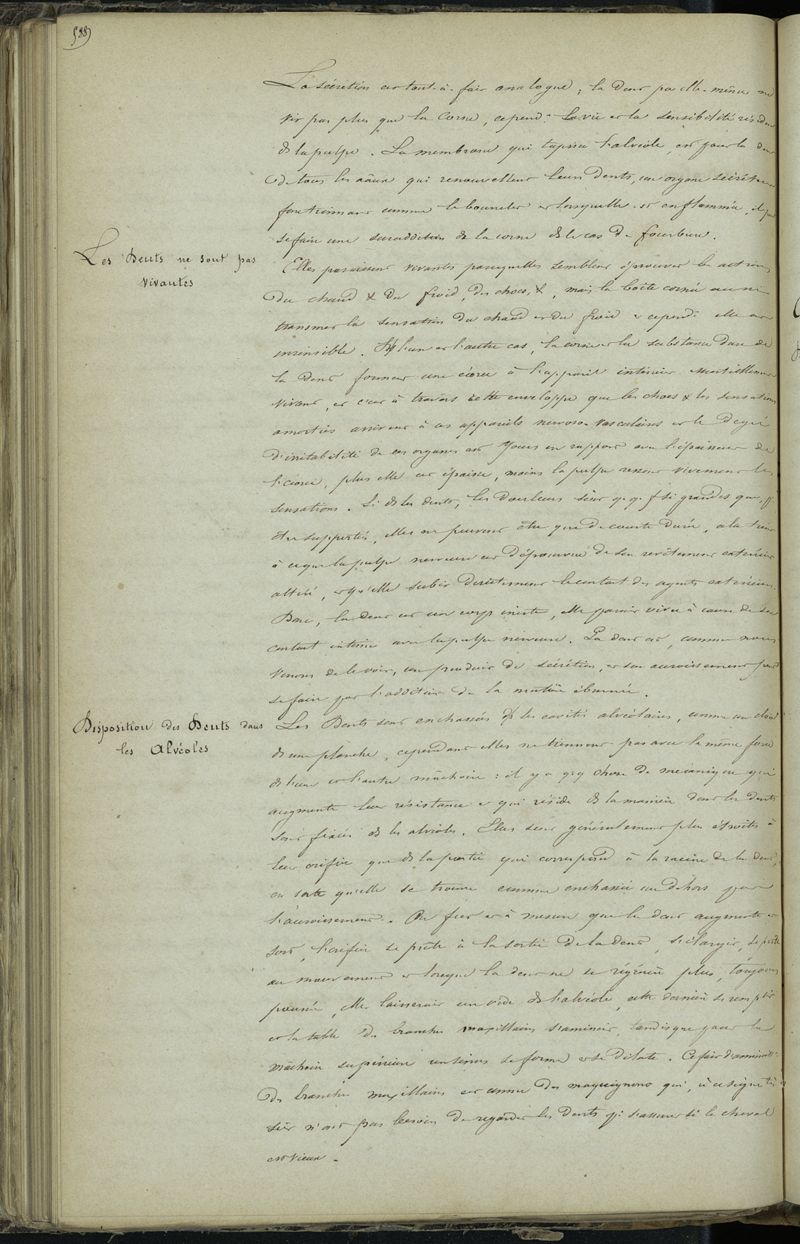 588)
La sécrétion est tout-à-fait analogue; la dent par elle-même ne
vit pas plus que la corne, cepend. la vie et la sensibilité résident
ds la pulpe. La membrane qui tapisse l'alvéole, est pour la dent
de tous les aaux qui renouvellent leurs dents, un organe sécréteur
fonctionnant comme le bourrelet et lorsqu'elle est enflammée, il
se faire une suraddition de la corne ds le cas de fourbure.
Les Dents ne sont pas
vivantes
Elles paraissent vivantes parcequ'elles semblent éprouver les actions
du chaud & du froid, des chocs, &, mais la boîte cornée aussi
transmet la sensation du chaud et du froid et cepend. elle est
insensible. Ds l'un et l'autre cas, la corne et la substance dure de
la dent forment une écorce à l'appareil intérieur essentiellement
vivant, et c'est à travers cette enveloppe que les chocs & les sensations
amorties arrivent à ces appareils nervoso-vasculaires et le degré
d'irritabilité de ces organes est en rapport avec l'épaisseur de
l'écorce, plus elle est épaisse, moins la pulpe ressent vivement les
sensations. Si ds les dents, les douleurs sont qq. f. si grandes que,
être supportées, elles ne peuvent être que de courte durée, cela tient
à ce que la pulpe nerveuse est dépourvue de son revêtement extérieur
altéré, et qu'elle subit directement le contact des agents extérieurs.
Donc, la dent est un corps inerte, elle paraît vivre à cause de son
contact intime avec la pulpe nerveuse. La dent est, comme nous
venons de le voir, un produit de sécrétion, et son accroissement peut
se faire par l'addition de la matière éburnée.
Disposition des Dents dans
les Alvéoles
Les Dents sont enchassées ds les cavités alvéolaires, comme un clou
ds une planche, cependant elles ne tiennent pas avec la même force
ds l'une et l'autre mâchoire: il y a qq chose de mécanique qui
augmente leur résistance et qui réside ds la manière dont les dents
sont fixées ds les alvéoles. Elles sont généralement plus étroites à
leur orifice que ds la partie qui correspond à la racine de la dent,
en sorte qu'elle se trouve comme enchassée au dehors pour
l'accroissement. Au fur et à mesure que la dent augmente et
sort, l'orifice se prête à la sortie de la dent, s'élargit, se prête
au mouvement et lorsque la dent ne se régénère plus, toujours
poussée, elle laisserait un vide ds l'alvéole, cette dernière se remplit
et la table des branches maxillaires s'amincit, tandis que pour la
mâchoire supérieure un sinus se forme et se dilate. Ce fait d'amincit.
des branches maxillaires est connu des maquignons qui, à ce signe
sûr n'ont pas besoin de regarder les dents pr s'assurer si le cheval
est vieux.